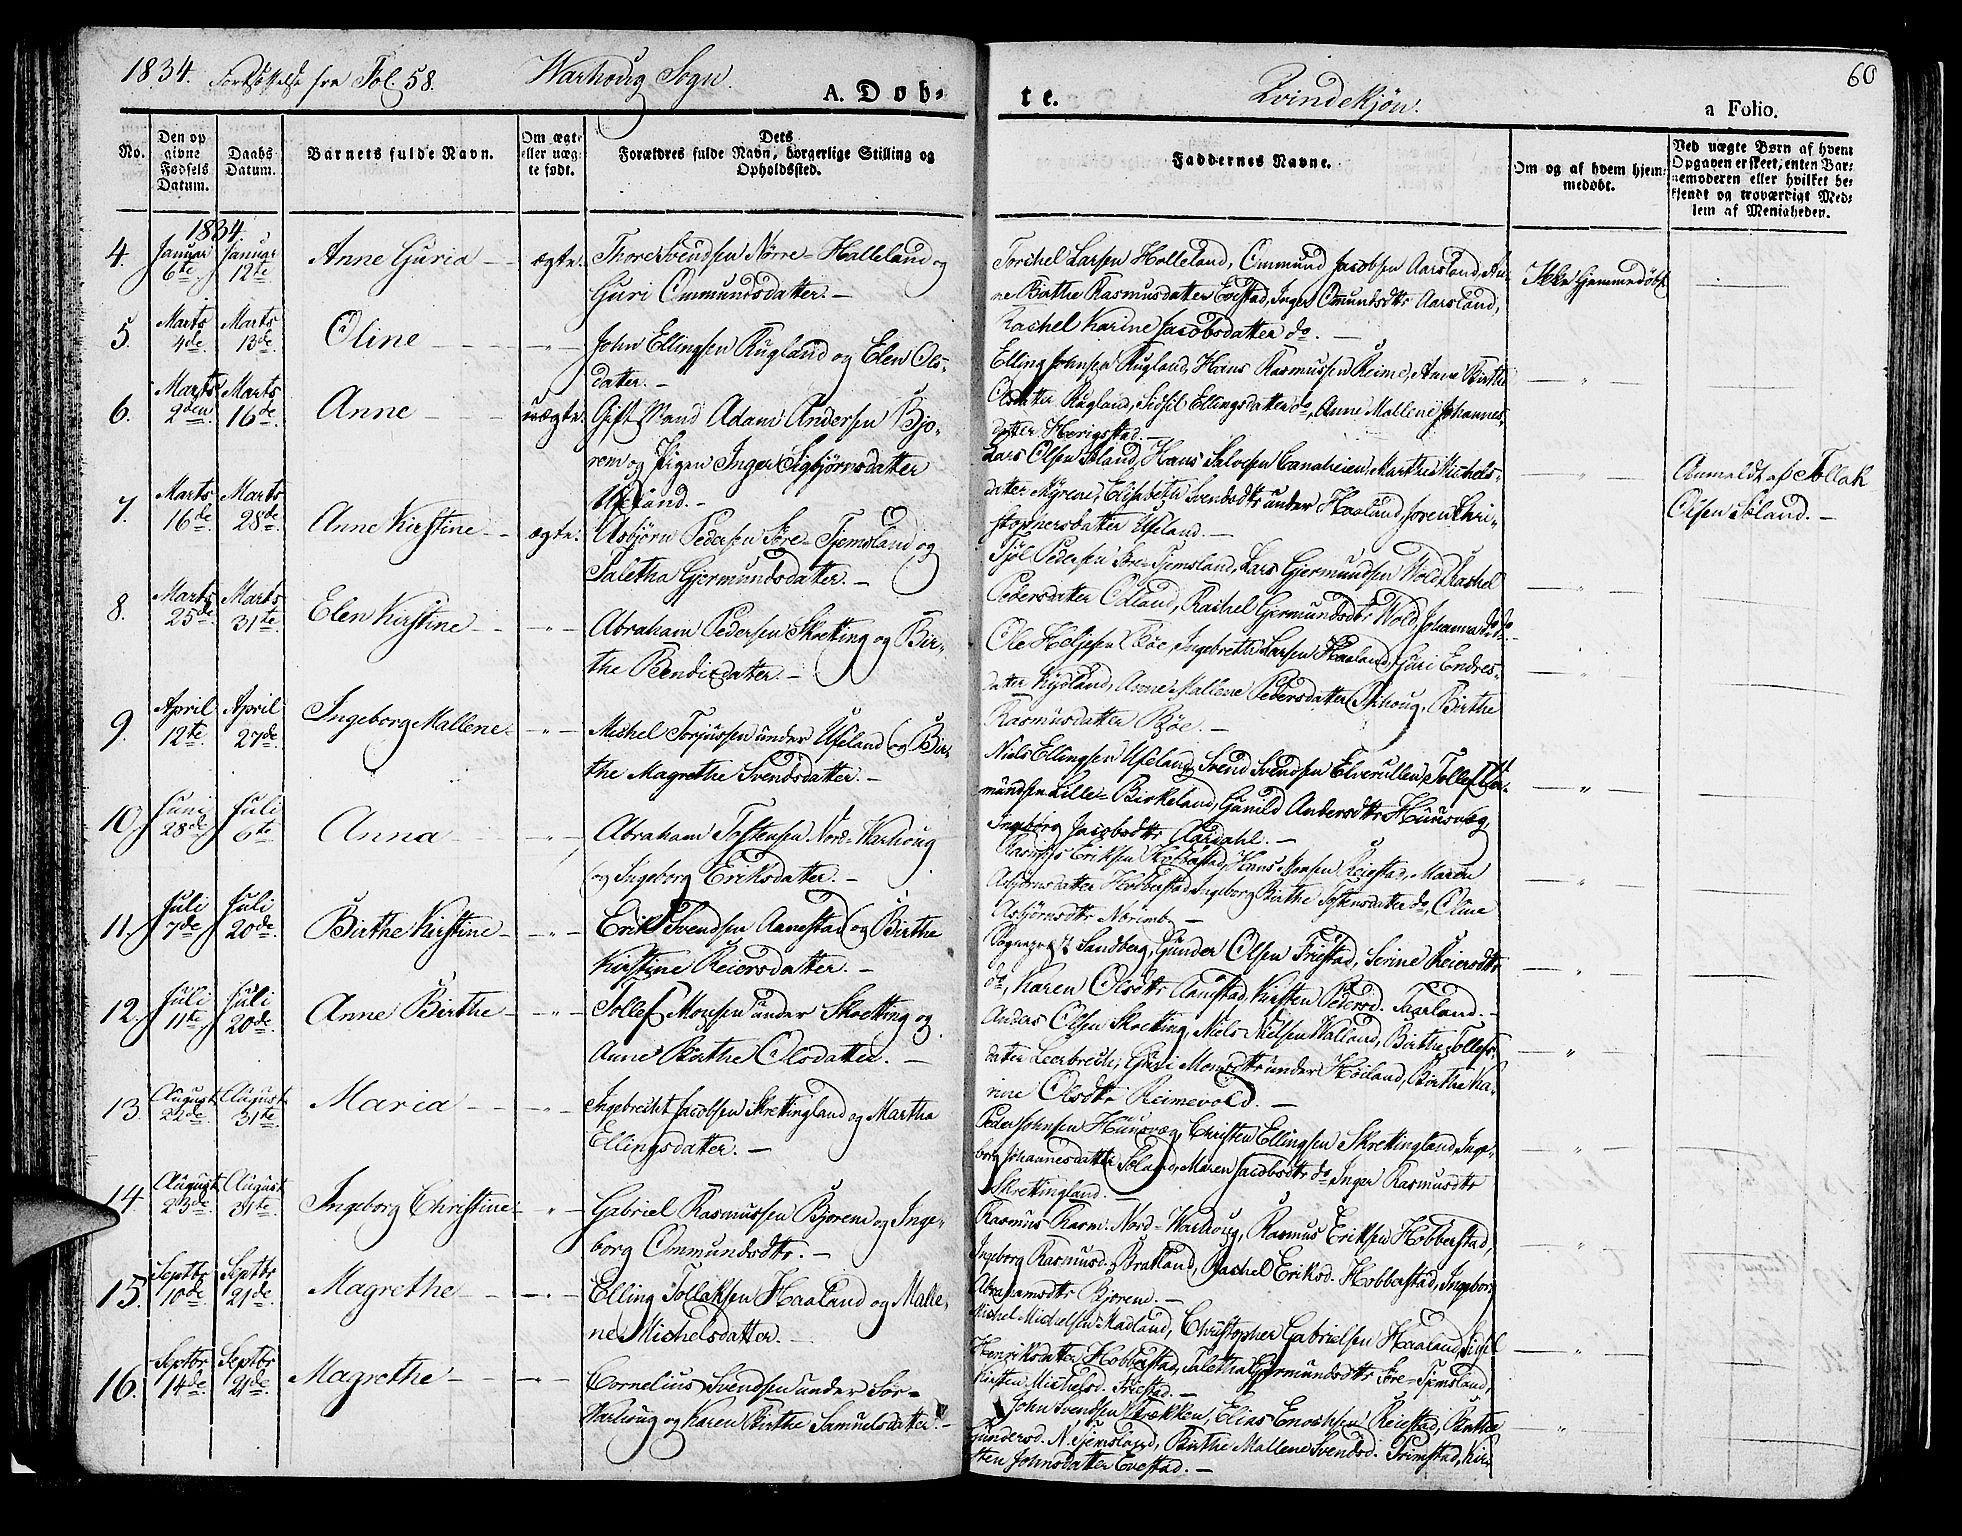 1834. Fortsættelse fra Fol. 58. Warhoug Sogn. A. Døb-
te. Qvindekjøn. 60
a Folio.
No.
Den op
givne
Fødsels
Datum.
Daabs
Datum.
Barnets fulde Navn.
Om ægte
eller uæg-
te født.
Dets
Forældres fulde Navn, borgerlige Stilling og
Opholdssted.
Faddernes Navne.
Om og af hvem hjem-
medøbt.
Ved uægte Børn af hvem
Opgaven er skeet, enten Bar-
nemoderen eller hvilket be-
kjendt og troværdigt Med-
lem af Menigheden.
1834
4. Januar 6te Januar 12te Anne Guria ægte. Thore Svendsen Nörre-Halleland og
Guri Ommundsdatter.
Torchel Larsen Holleland, Ommund Jacobsen Aarsland, An-
ne Birthe Rasmusdatter Evestad, Inger Omundsdtr Aarsland,
Rachel Karine Jacobsdatter do.
Ikke hjemmedøbt
5. Marts 4de Marts 13de Oline " John Ellingsen Rugland og Elen Ols-
datter.
Elling Johnsen Rugland, Hans Rasmussen Reime, Anne Birthe
Olsdatter Rugland, Sidsil Ellingsdatter do, Anne Mallene Johannes-
datter Hærigstad.
"
6. Marts 9den Marts 16de Anne uægte. Gift Mand Adam Andersen Bjo-
rem og Pigen Inger Sigbjörnsdatter
Ufsland.
Lars Olsen Söland, Hans Salvesen, Marthe Michels-
datter Myrene, Elisabeth Svendsdtr under Haaland, Soren Chri-
stophersdatter Ufsland.
"
Anmeldt af Tollak
Olsen Söland.
7. Marts 16de Marts 28de Anne Kirstine ægte. Asbjörn Pedersen Söre-Tjemsland og
Taletha Gjermundsdatter.
Tjöl Pedersen Söre-Tjemsland, Lars Gjermundsen Wold, Rachel
Pedersdatter Odland, Rachel Gjermundsdtr Wold, Johanna do do
"
8. Marts 25de Marts 31te Elen Kirstine " Abraham Pedersen Skretting og Bir-
the Bendixdatter.
Ole Helgesen Böe, Ingebreth Larsen Haaland, Guri Endres-
datter Rysland, Anne Mallene Pedersdatter, Birthe
Rasmusdatter Böe.
"
9. April 12te April 27de Ingeborg Mallene " Michel Torjussen under Ufsland og Bir-
the Magrethe Svendsdatter.
Niels Ellingsen Ufsland, Svend Svendsen, Tollef
mundsen Lille-Birkeland, Gunild Andersdtr Huusvæg
Ingeborg Jacobsdtr Aarsdahl.
"
10. Juni 28de Juli 6te Anna " Abraham Tostensen Nord-Warhoug
og Ingeborg Eriksdatter.
Rasmus Eriksen Hobberstad, Hans Monsen Reiestad, Maren
Asbjörnsdatter Hobberstad, Ingeborg Birthe Tostensdatter do, Oline
Asbjörnsdtr
"
11. Juli 7de Juli 20de Birthe Kirstine " Erik Svendsen Aanestad og Birthe
Kirstine Reiersdatter.
Sandberg, Gunder Olsen Friestad, Serine Reiersdtr
do, Karen Olsdtr Aanestad, Kirsten Pedersd. Taarland.
"
12. Juli 11te Juli 20de Anne Birthe " Tollef Monsen under Skretting og
Anne Birthe Olsdatter.
Anders Olsen Skretting, Niels Nielsen Wælland, Birthe Tollefs-
datter Leerbrech, Guri Monsdtr under Höiland, Birthe Ka-
rine Olsdtr Reimevold.
"
13. August 22de August 31te Maria " Ingebrecht Jacobsen Skrettingland og Martha
Ellingsdatter.
Peder Johnsen Huusvæg, Christen Ellingsen Skrettingland, Inge-
borg Johannesdatter Söland, Maren Jacobsdtr do Inger Rasmusdtr
Skrettingland.
"
14 August 23de August 31te Ingeborg Christine " Gabriel Rasmussen Bjorem og Inge-
borg Ommundsdtr.
Rasmus Rasm. Nord-Warhoug, Rasmus Eriksen Hobberstad,
Ingeborg Rasmusd. Bratland, Rachel Eriksd. Hobberstad, Ingeborg
Abrahamsdtr Bjorem.
"
15. Septbr 10de Septbr 21de Magrethe " Elling Tollaksen Haaland og Malle-
ne Michelsdatter.
Michel Michelsen Madland, Christopher Gabrielsen Haaland, Sidsil
Henriksdatter Hobberstad, Taletha Gjermundsdtr Söre-Tjemsland,
Kirsten Michelsd. Friestad.
"
16. Septbr 14de Septbr 21de Magrethe " Cornelius Svendsen under Sör-
Warhoug og Karen Birthe Samuelsdatter.
John Svendsen Stokken, Elias Enochsen Reiestad, Birthe
Gundersd. N. Tjemsland, Birthe Mallene Svendsd. Primstad, Kir-
sten Johnsdatter Evestad.
"